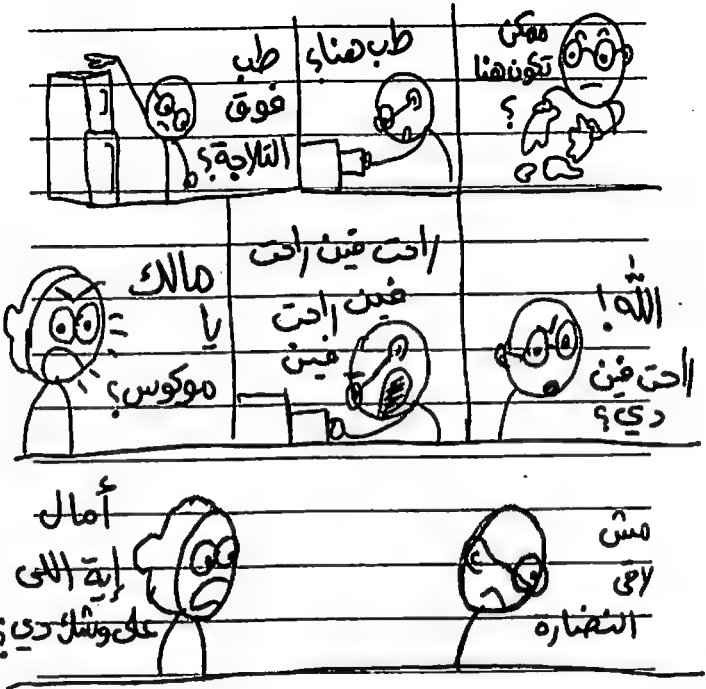 ممكن
تكون هنا
؟
طب هنا؟
طب
فوق
التلاجة؟
الله!
راحت فين
دي؟
راحت فين راحت
فين راحت
فين
مالك
يا
موكوس؟
مش
لاقى
النضاره
أمال
إية اللى
على وشك دي؟